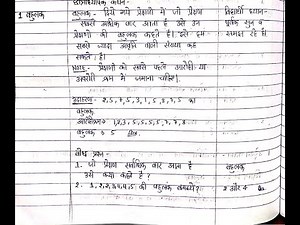 छात्राध्यापक कथन-
1 बहुलक
बहुलक - दिये गये प्रेक्षणों में जो प्रेक्षण
सबसे अधिक बार आता है उसे उन
प्रेक्षणों की बहुलक कहते हैं। इसे हम
सबसे ज्यादा आवृत्ति वाली संख्या कह
सकते हैं।
विद्यार्थी ध्यान-
पूर्वक सुन व
समझ रहे हैं।
नोट - प्रेक्षणों को सर्वप्रथम आरोही या
अवरोही क्रम में जमाना चाहिए।
उदाहरण - 2, 5, 7, 5, 3, 1, 5, 8, 7, 5 का
बहुलक
1, 2, 3, 5, 5, 5, 5, 7, 7, 8
बहुलक = 5
बोध प्रश्न -
1. जो प्रेक्षण सर्वाधिक बार आता है
उसे क्या कहते हैं?
बहुलक
2. 1, 2, 2, 3, 4, 4, 5 की बहुलक बताओ?
2 और 4